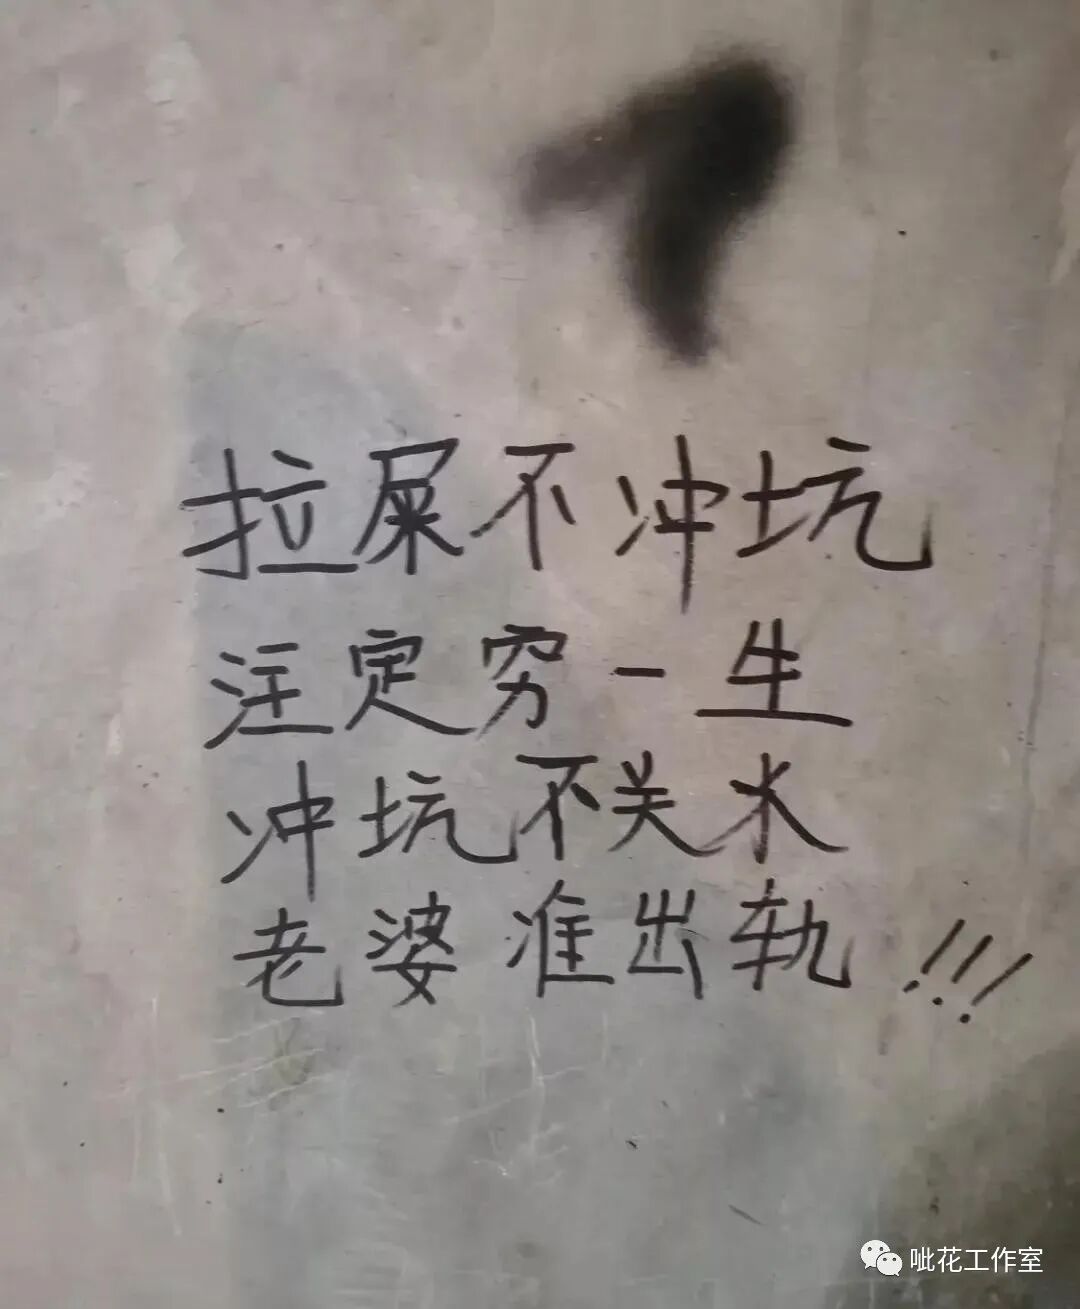 拉屎不冲坑
注定穷一生
冲坑不关水
老婆准出轨!!!
呲花工作室